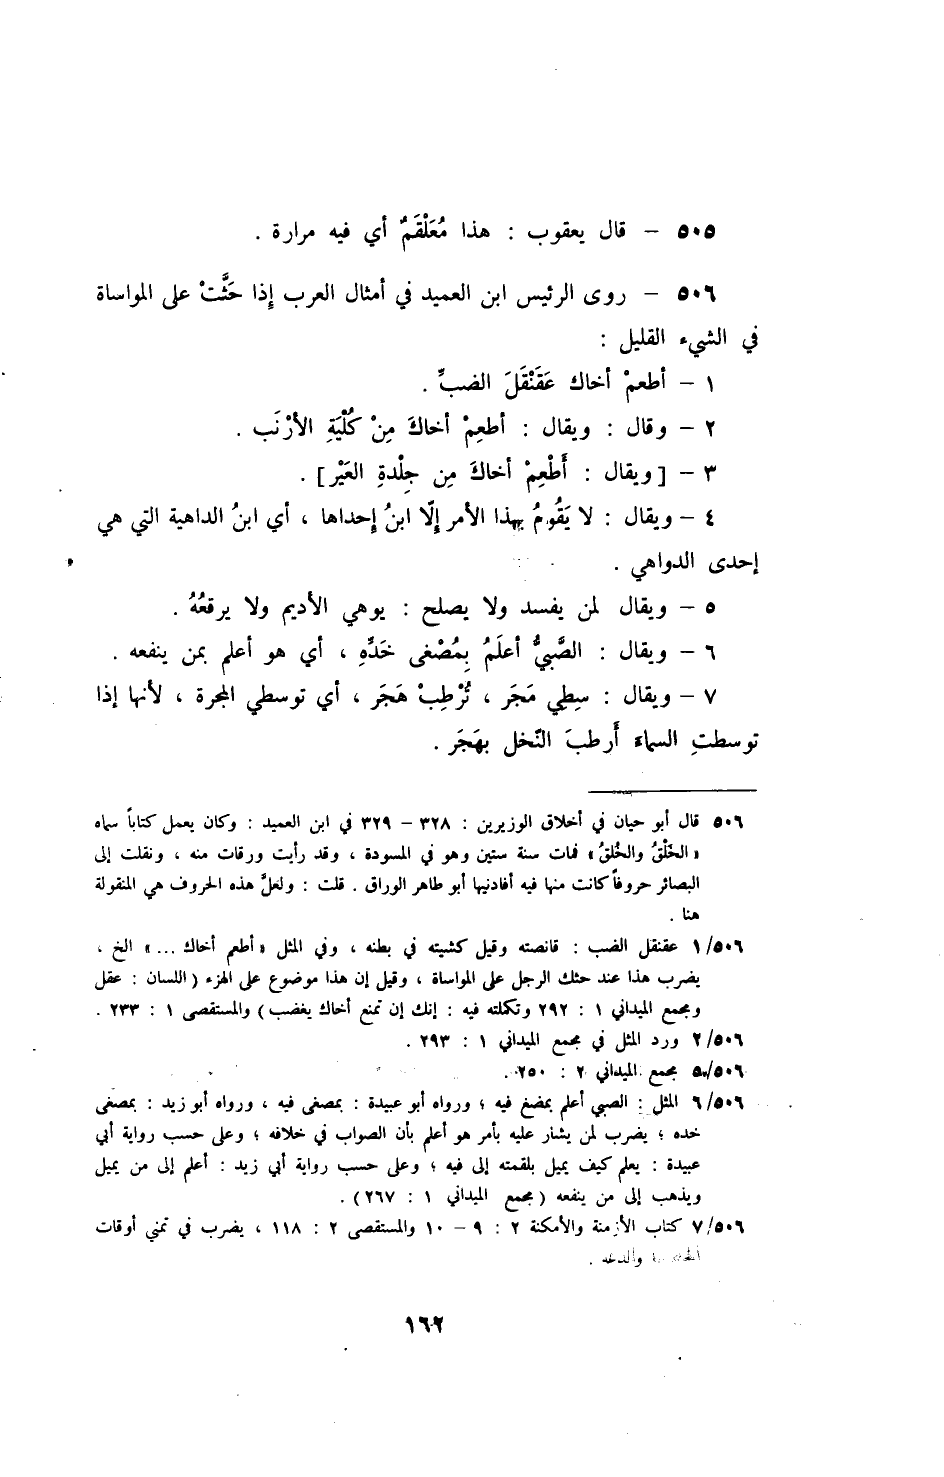 ٥٠٥ – قال يعقوب : هذا مُعَلْقَمٌ أي فيه مرارة .
٥٠٦ – روى الرئيس ابن العميد في أمثال العرب إِذا حَثَّتْ على المواساة
في الشيء القليل :
١ – أطعمْ أخاك عَقَنْقَلَ الضبِّ .
٢ – وقال : ويقال : أطعِمْ أخاكَ مِنْ كُلْيَةِ الأرْنَب .
٣ – [ ويقال : أَطْعِمْ أخاكَ مِن جِلْدةِ العَيْر ] .
٤ – ويقال : لا يَقُومُ بهذا الأمر إِلّا ابنُ إِحداها ، أي ابنُ الداهية التي هي
إحدى الدواهي .
٥ – ويقال لمن يفسد ولا يصلح : يوهي الأديم ولا يرقعُهُ .
٦ – ويقال : الصَّبيُّ أعلَمُ بِمُصْغى خَدِّهِ ، أي هو أعلم بمن ينفعه .
٧ – ويقال : سِطِي مَجَر ، تُرْطِبْ هَجَر ، أي توسطي المجرة ، لأنها إذا
توسطتِ السماءَ أَرطبَ النّخل بهَجَر .
٥٠٦ قال أبو حيان في أخلاق الوزيرين : ٣٢٨ – ٣٢٩ في ابن العميد : وكان يعمل كتاباً سماه
« الخَلْقُ والخُلقُ » فمات سنة ستين وهو في المسودة ، وقد رأيت ورقات منه ، ونقلت إلى
البصائر حروفاً كانت منها فيه أفادنيها أبو طاهر الوراق . قلت : ولعلَّ هذه الحروف هي المنقولة
هنا .
١/٥٠٦ عقنقل الضب : قانصته وقيل كشيته في بطنه ، وفي المثل « أطعم أخاك ... » الخ ،
يضرب هذا عند حثك الرجل على المواساة ، وقيل إن هذا موضوع على الهزء ( اللسان : عقل
ومجمع الميداني ١ : ٢٩٢ وتكملته فيه : إنك إن تمنع أخاك يغضب ) والمستقصى ١ : ٢٣٣ .
٢/٥٠٦ ورد المثل في مجمع الميداني ١ : ٢٩٣ .
٥/٥٠٦ مجمع الميداني ٢ : ٢٥٠ .
٦/٥٠٦ المثل : الصبي أعلم بمضغ فيه ؛ ورواه أبو عبيدة : بمصغى فيه ، ورواه أبو زيد : بمصغى
خده ؛ يضرب لمن يشار عليه بأمر هو أعلم بأن الصواب في خلافه ؛ وعلى حسب رواية أبي
عبيدة : يعلم كيف يميل بلقمته إلى فيه ؛ وعلى حسب رواية أبي زيد : أعلم إلى من يميل
ويذهب إلى من ينفعه ( مجمع الميداني ١ : ٢٦٧ ) .
٧/٥٠٦ كتاب الأزمنة والأمكنة ٢ : ٩ – ١٠ والمستقصى ٢ : ١١٨ ، يضرب في تمني أوقات
والدعه .
١٦٢